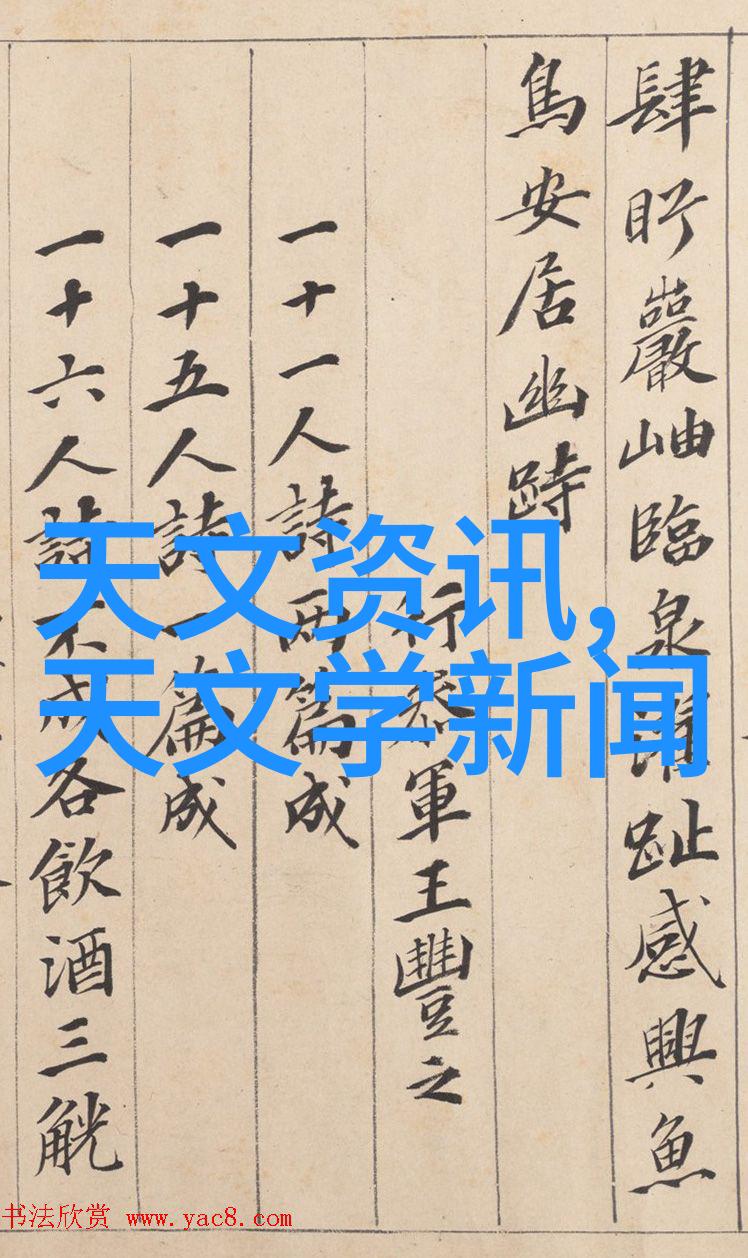 肆眄巖岫臨泉濯趾感興魚
鳥安居幽跱
行叅軍王豐之
一十一人詩兩篇成
一十五人詩一篇成
一十六人詩不成各飲酒三觥
天文资讯,
天文学新闻
书法欣赏 www.yac8.com